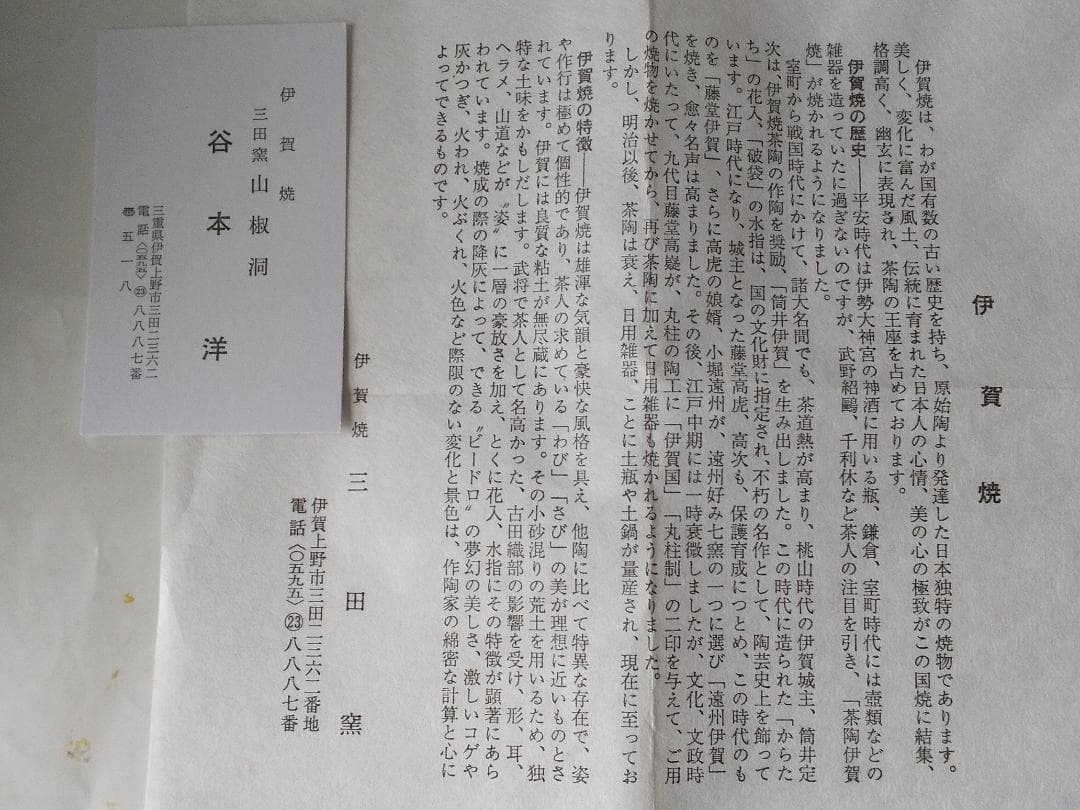 伊賀焼
伊賀焼は、わが国有数の古い歴史を持ち、原始陶より発達した日本独特の焼物であります。
美しく、変化に富んだ風土、伝統に育まれた日本人の心情、美の心の極致がこの国焼に結集、
格調高く、幽玄に表現され、茶陶の王座を占めております。
伊賀焼の歴史――平安時代は伊勢大神宮の神酒に用いる瓶、鎌倉、室町時代には壺類などの
雑器を造っていたに過ぎないのですが、武野紹鷗、千利休など茶人の注目を引き、「茶陶伊賀
焼」が焼かれるようになりました。
室町から戦国時代にかけて、諸大名間でも、茶道熱が高まり、桃山時代の伊賀城主、筒井定
次は、伊賀焼茶陶の作陶を奨励、「筒井伊賀」を生み出しました。この時代に造られた「からた
ち」の花入、「破袋」の水指は、国の文化財に指定され、不朽の名作として、陶芸史上を飾って
います。江戸時代になり、城主となった藤堂高虎、高次も、保護育成につとめ、この時代のも
のを「藤堂伊賀」、さらに高虎の娘婿、小堀遠州が、遠州好み七窯の一つに選び「遠州伊賀」
を焼き、愈々名声は高まりました。その後、江戸中期には一時衰微しましたが、文化、文政時
代にいたって、九代目藤堂高嶷が、丸柱の陶工に「伊賀国」「丸柱制」の二印を与えて、ご用
の焼物を焼かせてから、再び茶陶に加えて日用雑器も焼かれるようになりました。
しかし、明治以後、茶陶は衰え、日用雑器、ことに土瓶や土鍋が量産され、現在に至ってお
ります。
伊賀焼の特徴――伊賀焼は雄渾な気韻と豪快な風格を具え、他陶に比べて特異な存在で、姿
や作行は極めて個性的であり、茶人の求めている「わび」「さび」の美が理想に近いものとさ
れています。伊賀には良質な粘土が無尽蔵にあります。その小砂混りの荒土を用いるため、独
特な土味をかもしだします。武将で茶人として名高かった、古田織部の影響を受け、形、耳、
ヘラメ、山道などが〝姿〟に一層の豪放さを加え、とくに花入、水指にその特徴が顕著にあら
われています。焼成の際の降灰によって、できる〝ビードロ〟の夢幻の美しさ、激しいコゲや
灰かつぎ、火われ、火ぶくれ、火色など際限のない変化と景色は、作陶家の綿密な計算と心に
よってできるものです。
伊賀焼 三田窯
伊賀上野市三田二三六二番地
電話〈〇五九五〉㉓八八八七番
伊賀焼
三田窯山椒洞
谷本洋
三重県伊賀上野市三田二三六二
電話〈〇五九五〉㉓八八八七番
五一八